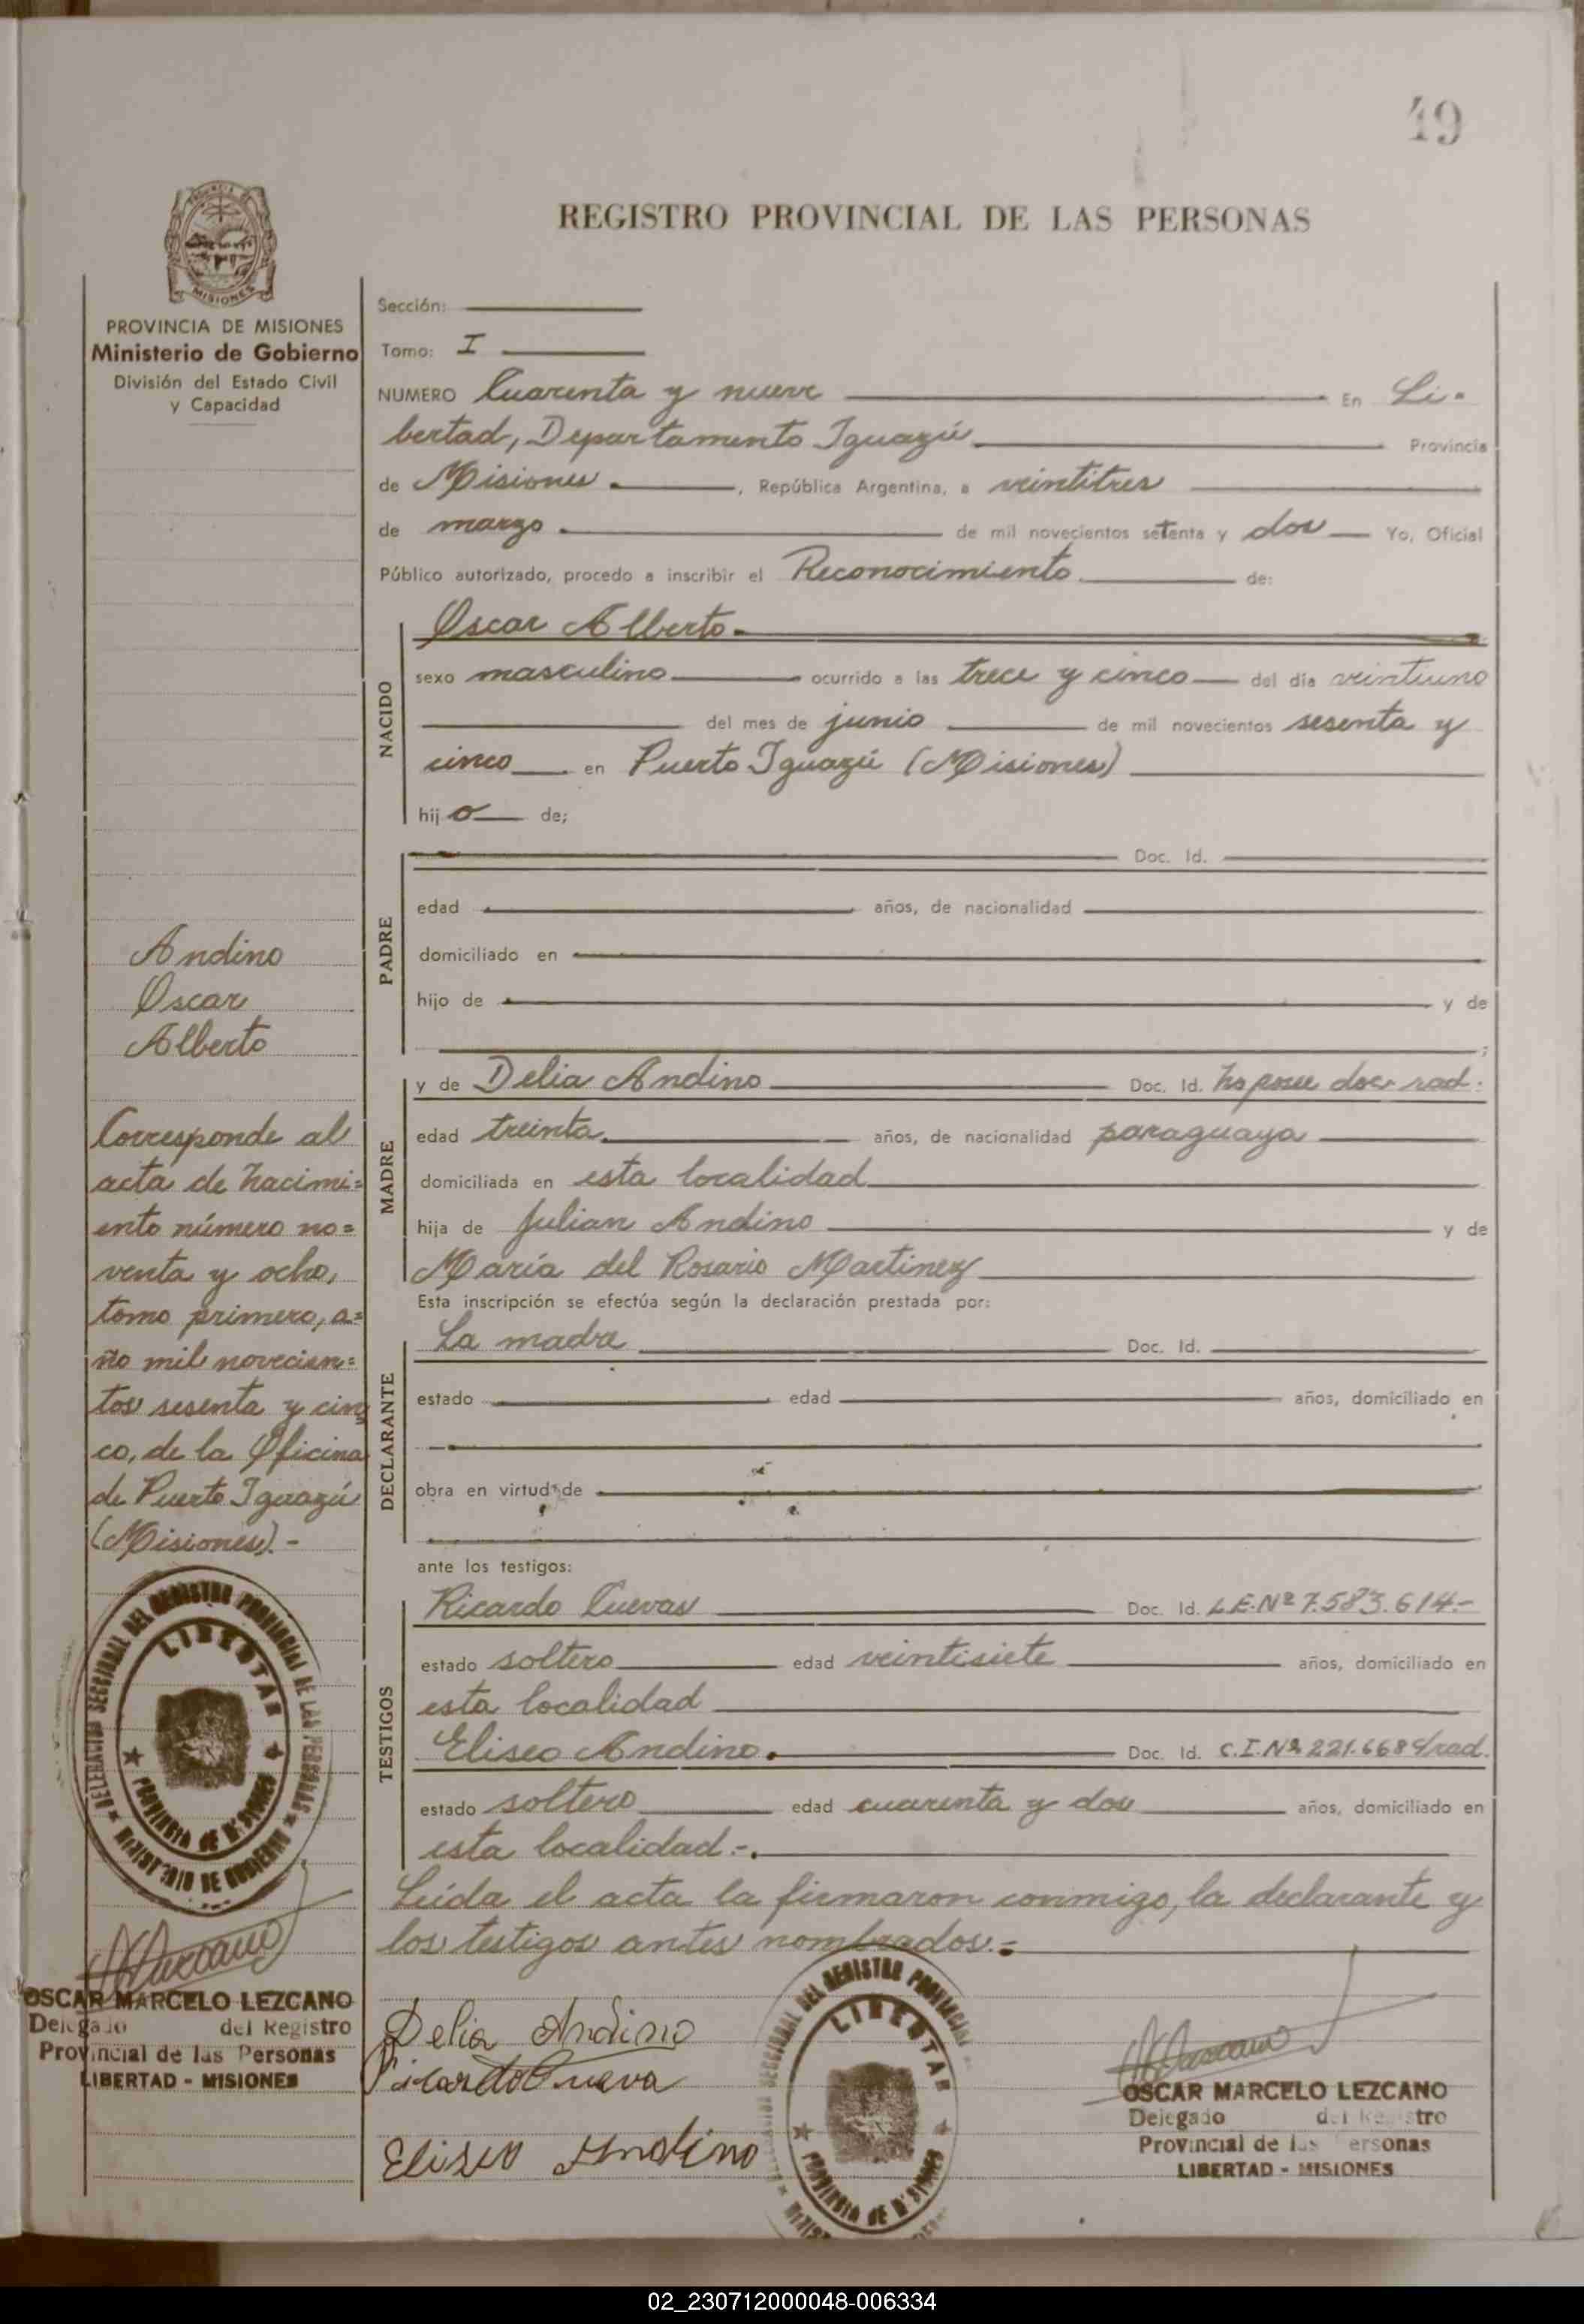 49
REGISTRO PROVINCIAL DE LAS PERSONAS
MISIONES
PROVINCIA DE MISIONES
Ministerio de Gobierno
División del Estado Civil
y Capacidad
Andino
Oscar
Alberto
Corresponde al
acta de nacimi=
ento número no=
venta y ocho,
tomo primero, a=
ño mil novecien=
tos sesenta y cin
co, de la Oficina
de Puerto Iguazú
(Misiones).-
DELEGACIÓN SECCIONAL DEL REGISTRO PROVINCIAL DE LAS PERSONAS
LIBERTAD
PROVINCIA DE M'SIONES
MINISTERIO DE GOBIERNO
OSCAR MARCELO LEZCANO
Delegado del Registro
Provincial de las Personas
LIBERTAD - MISIONES
Sección:
Tomo: I
NUMERO Cuarenta y nueve En Li=
bertad, Departamento Iguazú Provincia
de Misiones, República Argentina, a veintitres
de marzo de mil novecientos setenta y dos Yo, Oficial
Público autorizado, procedo a inscribir el Reconocimiento de:
NACIDO
Oscar Alberto.
sexo masculino ocurrido a las trece y cinco del día veintiuno
del mes de junio de mil novecientos sesenta y
cinco en Puerto Iguazú (Misiones)
hijo de;
PADRE
Doc. Id.
edad años, de nacionalidad
domiciliado en
hijo de y de
;
MADRE
y de Delia Andino Doc. Id. no posee doc. rad.
edad treinta años, de nacionalidad paraguaya
domiciliada en esta localidad
hija de Julian Andino y de
María del Rosario Martinez
Esta inscripción se efectúa según la declaración prestada por:
DECLARANTE
La madre Doc. Id.
estado edad años, domiciliado en
obra en virtud de
ante los testigos:
TESTIGOS
Ricardo Cuevas Doc. Id. L.E.Nº 7.583.614.-
estado soltero edad veintisiete años, domiciliado en
esta localidad
Eliseo Andino. Doc. Id. C.I.Nº 221.668 rad.
estado soltero edad cuarenta y dos años, domiciliado en
esta localidad.-.
Leída el acta la firmaron conmigo, la declarante y
los testigos antes nombrados.=
Delia Andino
Ricardo Cueva
Eliseo Andino
DELEGACIÓN SECCIONAL DEL REGISTRO PROVINCIAL
LIBERTAD
PROVINCIA DE M'SIONES
OSCAR MARCELO LEZCANO
Delegado del Registro
Provincial de las Personas
LIBERTAD - MISIONES
02_230712000048-006334